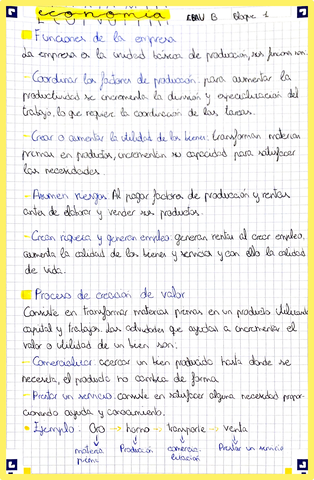 economía EBAU B Bloque 1
Funciones de la empresa
La empresa es la unidad básica de producción, sus funciones son:
- Coordinar los factores de producción: para aumentar la
productividad se incrementa la división y especialización del
trabajo, lo que requiere la coordinación de las tareas.
- Crear o aumentar la utilidad de los bienes: transforman materias
primas en productos, incrementan su capacidad para satisfacer
las necesidades.
- Asumen riesgos: Al pagar factores de producción y rentas
antes de elaborar y vender sus productos.
- Crean riqueza y generan empleo: generan rentas al crear empleo,
aumenta la calidad de los bienes y servicios y con ello la calidad
de vida.
Proceso de creación de valor
Consiste en transformar materias primas en un producto utilizando
capital y trabajo. Las actividades que ayudan a incrementar el
valor o utilidad de un bien son:
- Comercializar: acercar un bien producido hasta donde se
necesita, el producto no cambia de forma
- Prestar un servicio: consiste en satisfacer alguna necesidad propor-
cionando ayuda y conocimiento.
• Ejemplo: Oro → horno → transporte → venta
materia prima Producción comercia-lización Prestar un servicio